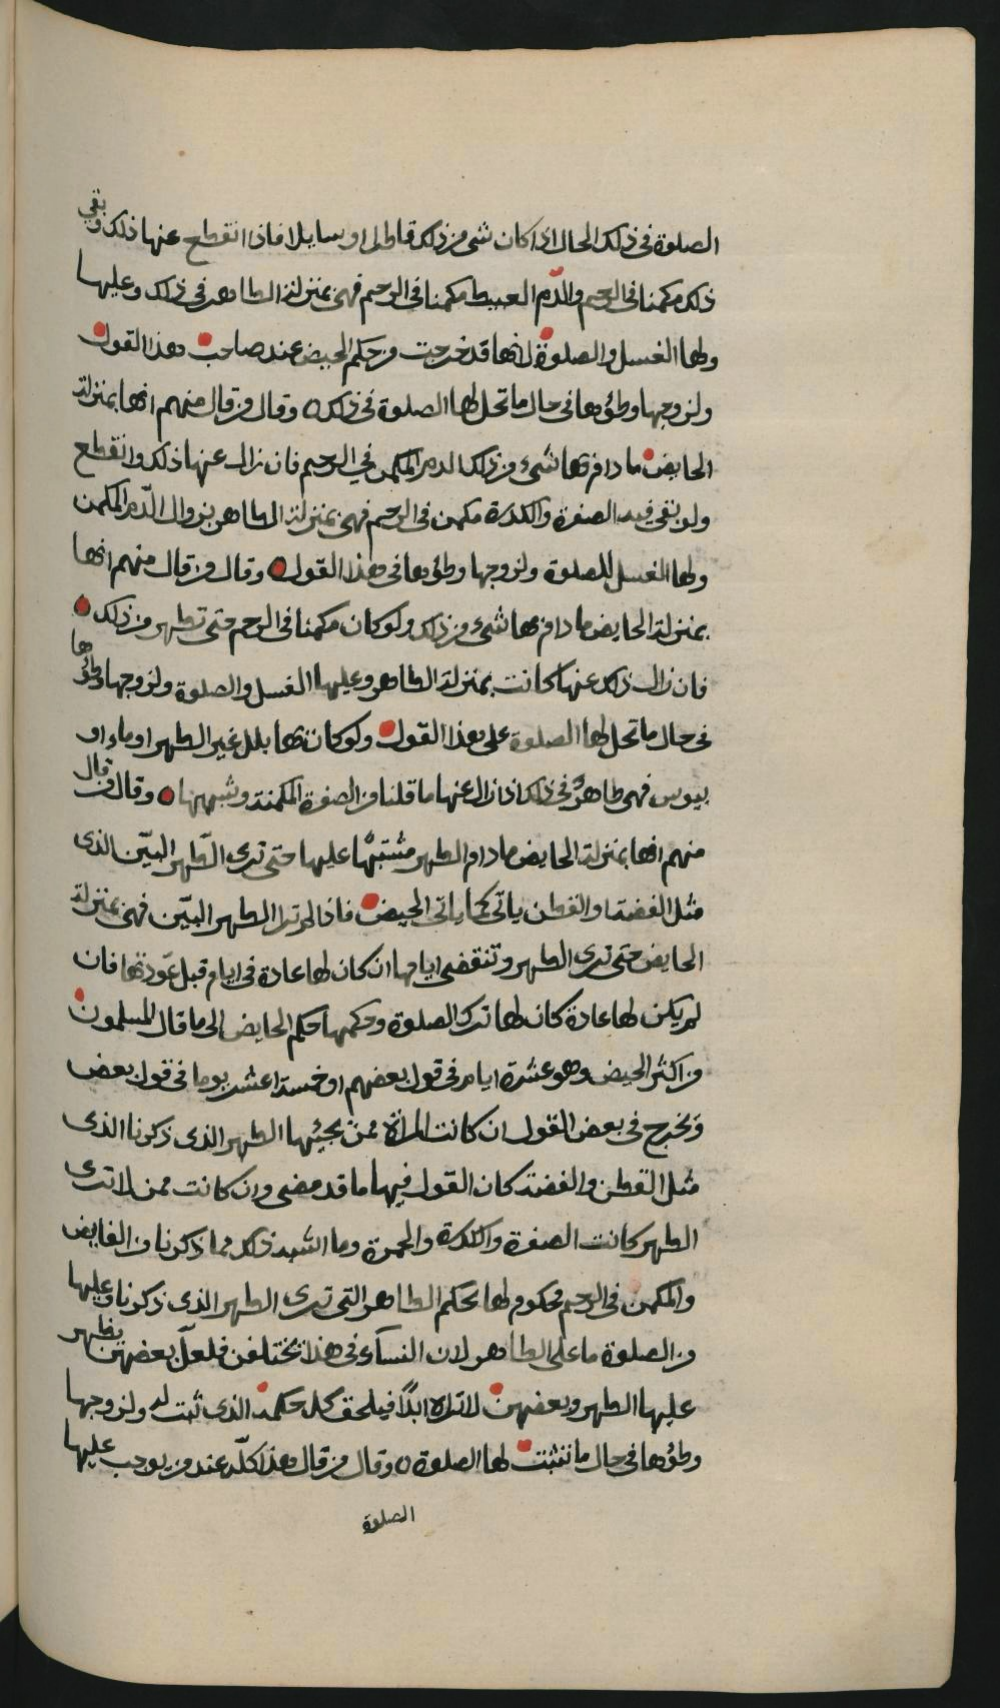 الصلوة فى ذلك الحال اذا كان شى من ذلك قاطرا او سايلا فاذا انقطع عنها ذلك وبقي
ذلك مكمنا فى الرحم والدّم العبيط مكمنا فى الرحم فهى بمنزلة الطاهر فى ذلك وعليها
ولها الغسل والصلوة لانها قد خرجت من حكم الحيض عند صاحب هذا القول
ولزوجها وطؤها فى حال ما تحل لها الصلوة فى ذلك ه وقال من قال منهم انها بمنزلة
الحايض ما دام بها شىء من ذلك الدم المكمن في الرحم فان زال عنها ذلك وانقطع
ولو بقى فيه الصفرة والكدرة مكمن فى الرحم فهى بمنزلة الطاهر بزوال الدّم المكمن
ولها الغسل للصلوة ولزوجها وطؤها فى هذا القول ه وقال من قال منهم انها
بمنزلة الحايض ما دام بها شىء من ذلك ولو كان مكمنا فى الرحم حتى تطهر من ذلك ه
فان زال ذلك عنها كانت بمنزلة الطاهر وعليها الغسل والصلوة ولزوجها وطؤها
فى حال ما تحل لها الصلوة على هذا القول ولو كان بها بلل غير الطهر او ماء او
يبوس فهى طاهرٌ فى ذلك اذا زال عنها ما قلنا من الصفرة المكمنة وشبهها ه وقال من قال
منهم انها بمنزلة الحايض ما دام الطهر مشتبهًا عليها حتى ترى الطّهر البيّن الذى
مثل الفضة او القطن ياتى كما ياتى الحيض فاذا لم تر الطهر البيّن فهى بمنزلة
الحايض حتى ترى الطهر وتنقضى ايامها ان كان لها عادة فى ايام قبل عودتها فان
لم يكن لها عادة كان لها ترك الصلوة وحكمها حكم الحايض الى ما قال المسلمون
من اكثر الحيض وهو عشرة ايام فى قول بعضهم او خمسة عشر يوما فى قول بعض
ويخرج فى بعض القول ان كانت المراة ممن يجيئها الطهر الذى ذكرنا الذى
مثل القطن والفضة كان القول فيها ما قد مضى وان كانت ممن لا ترى
الطهر كانت الصفرة والكدرة والحمرة وما اشبه ذلك مما ذكرنا من الفايض
والمكمن فى الرحم محكوم لها بحكم الطاهر التى ترى الطهر الذى ذكرنا وعليها
من الصلوة ما على الطاهر لان النسآء فى هذا يختلفن فلعلّ بعضهن يظهر
عليها الطهر وبعضهن لا تراه ابدًا فيلحق كل حكمه الذى ثبت له ولزوجها
وطؤها فى حال ما تثبت لها الصلوة ه وقال من قال وهذا كلّه عند من يوجب عليها
الصلوة